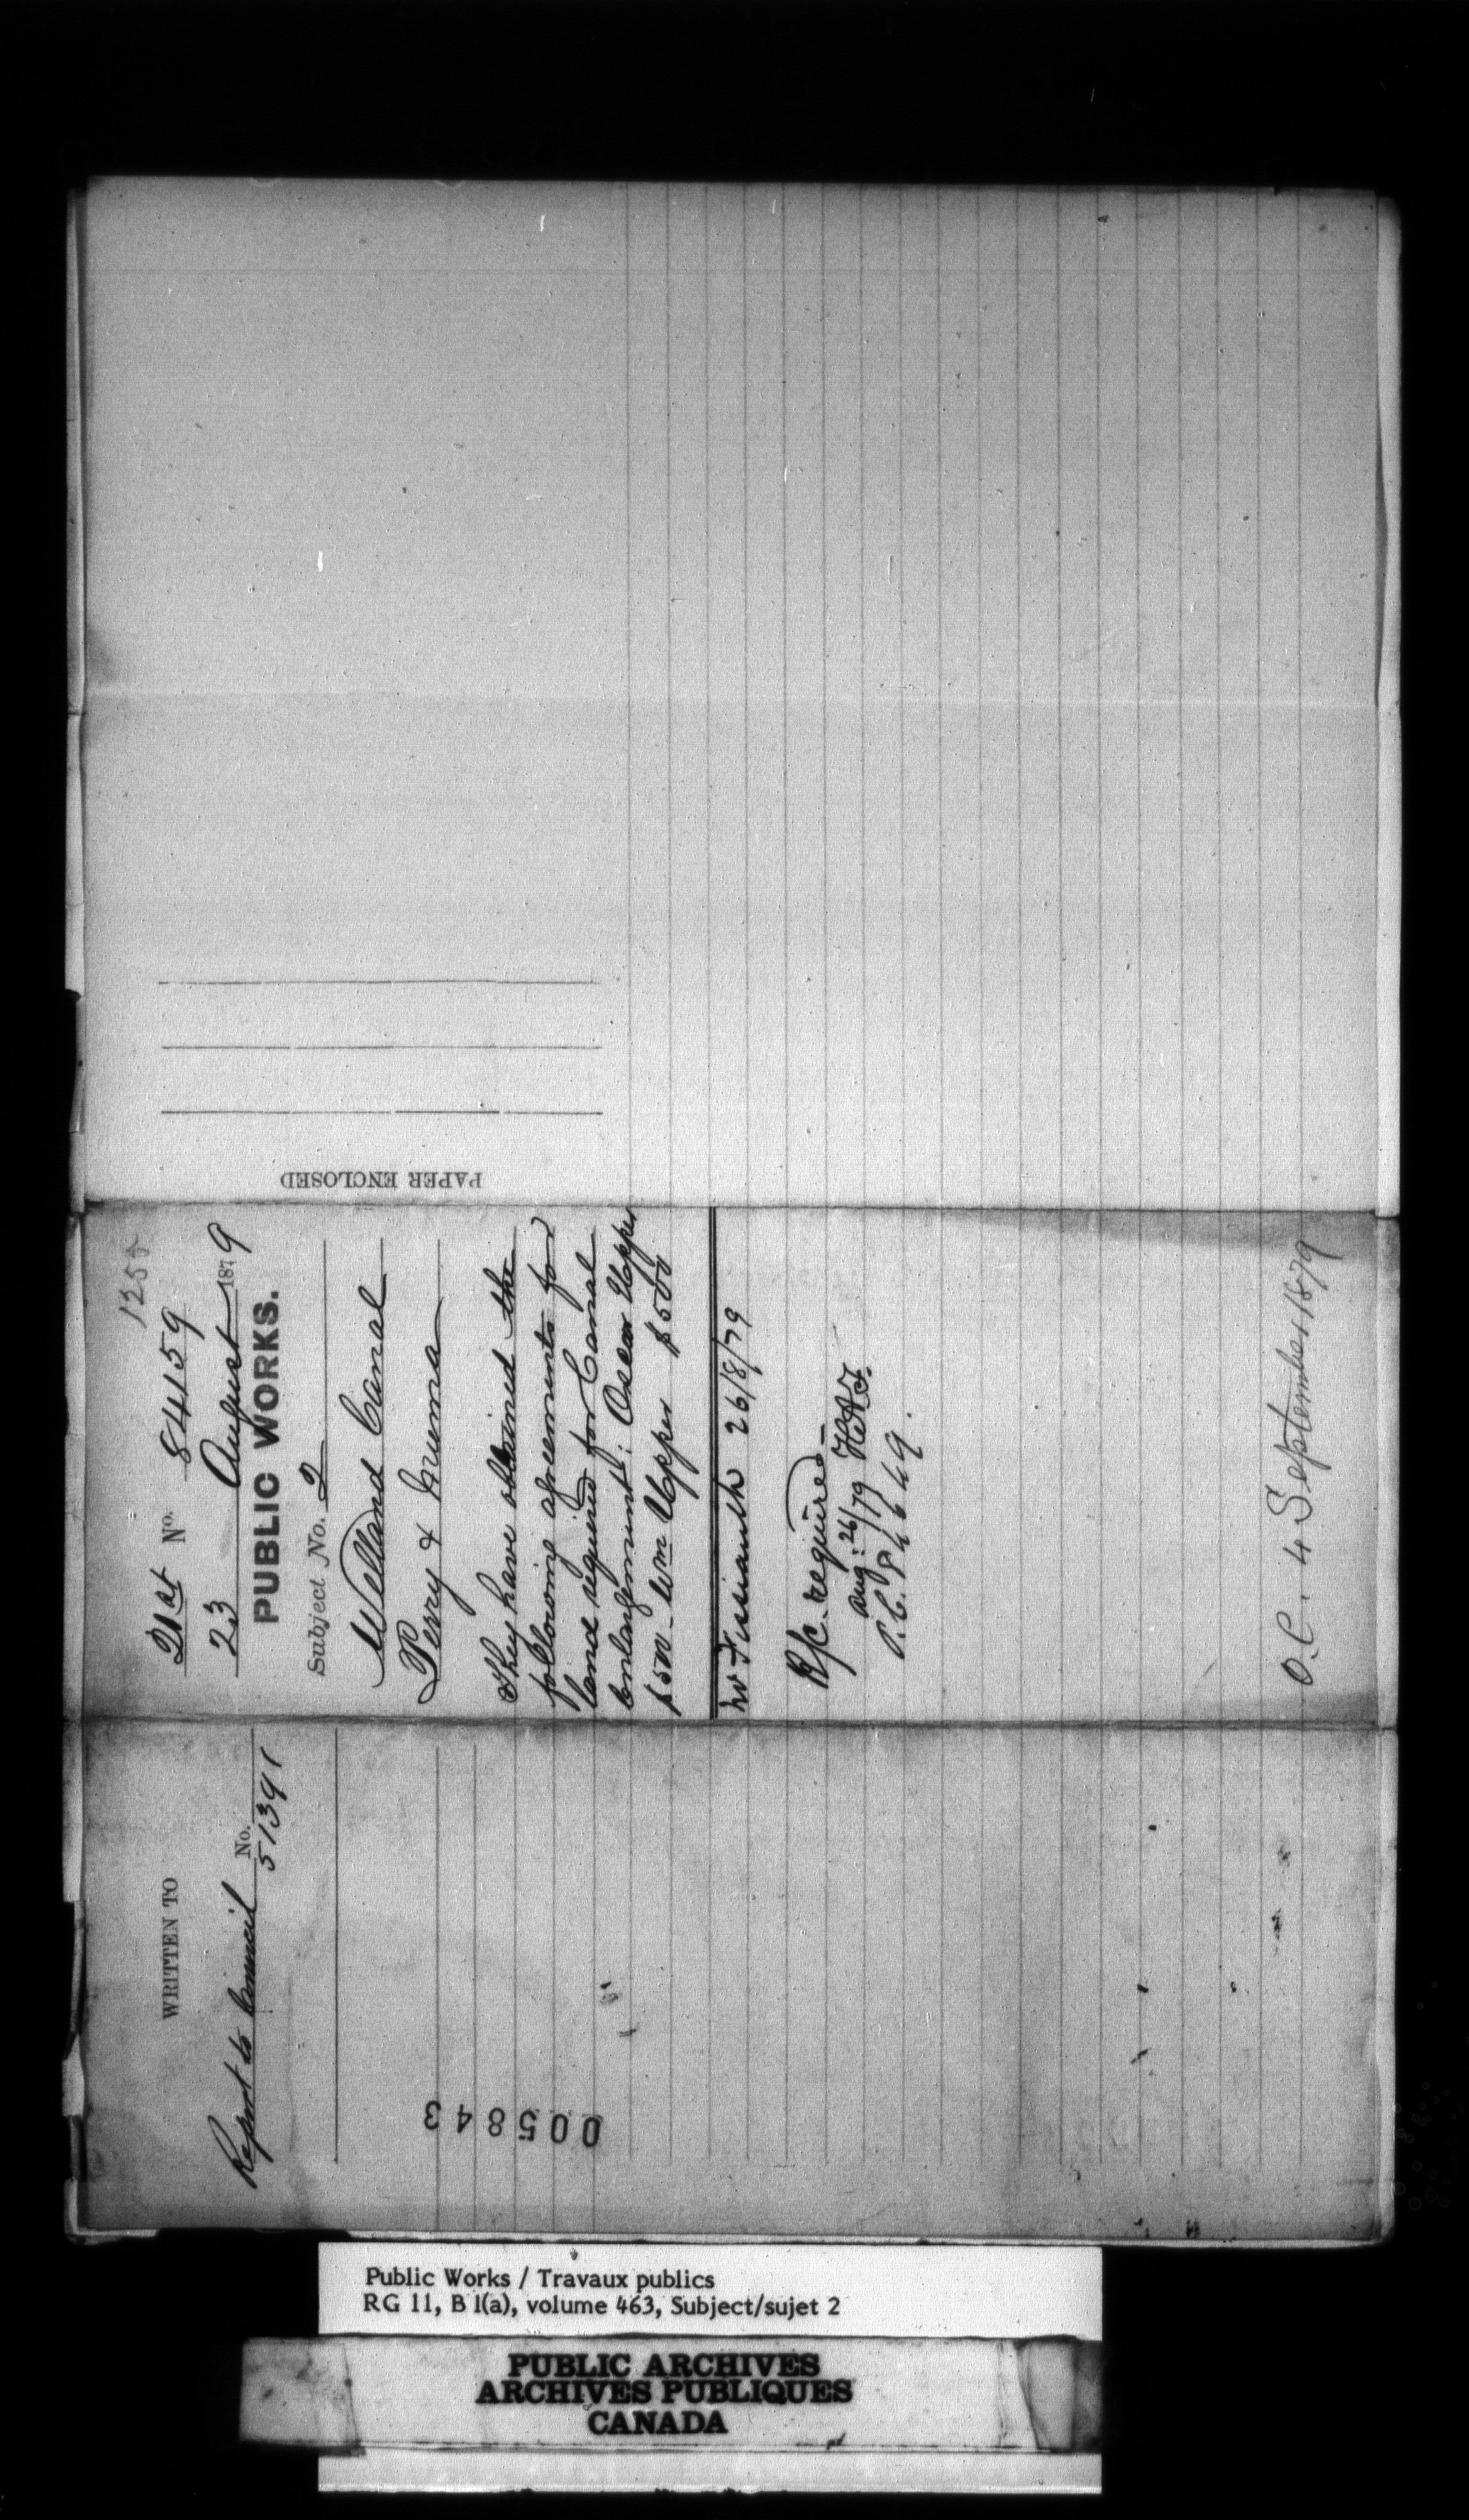 1255
21st No. 84159
23 August 1879
PUBLIC WORKS.
Subject No. 2
Welland Canal
Perry & Gruma
They have obtained the
following agreements for
land required for Canal
enlargement: Oscar Upper
$500 - Wm Upper $500
26/8/79
R/C. required -
Aug: 26/79
P.C. 86649.
O.C. 4 September 1879
PAPER ENCLOSED
WRITTEN TO
Report to Council
No.
51391
005843
Public Works / Travaux publics
RG 11, B 1(a), volume 463, Subject/sujet 2
PUBLIC ARCHIVES
ARCHIVES PUBLIQUES
CANADA